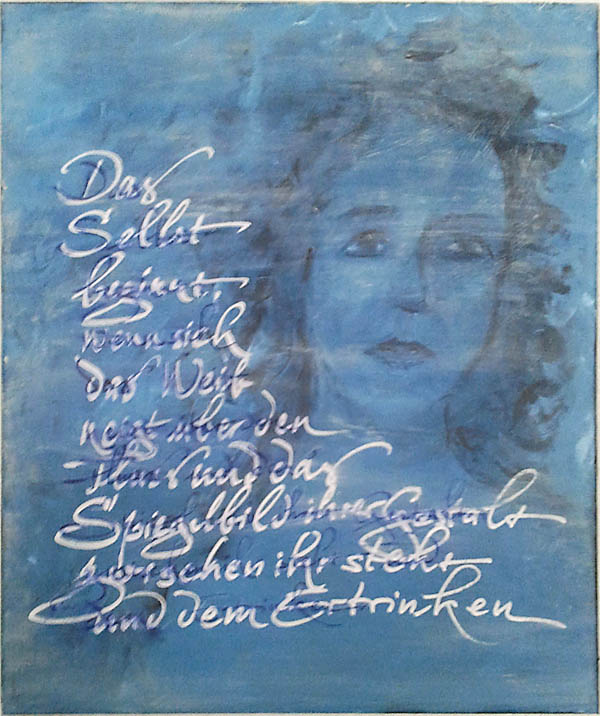 Das
Selbst
beginnt,
wenn sich
das Weib
neigt über den
Fluss und das
Spiegelbild ihrer Gestalt
zwischen ihr steht
und dem Ertrinken